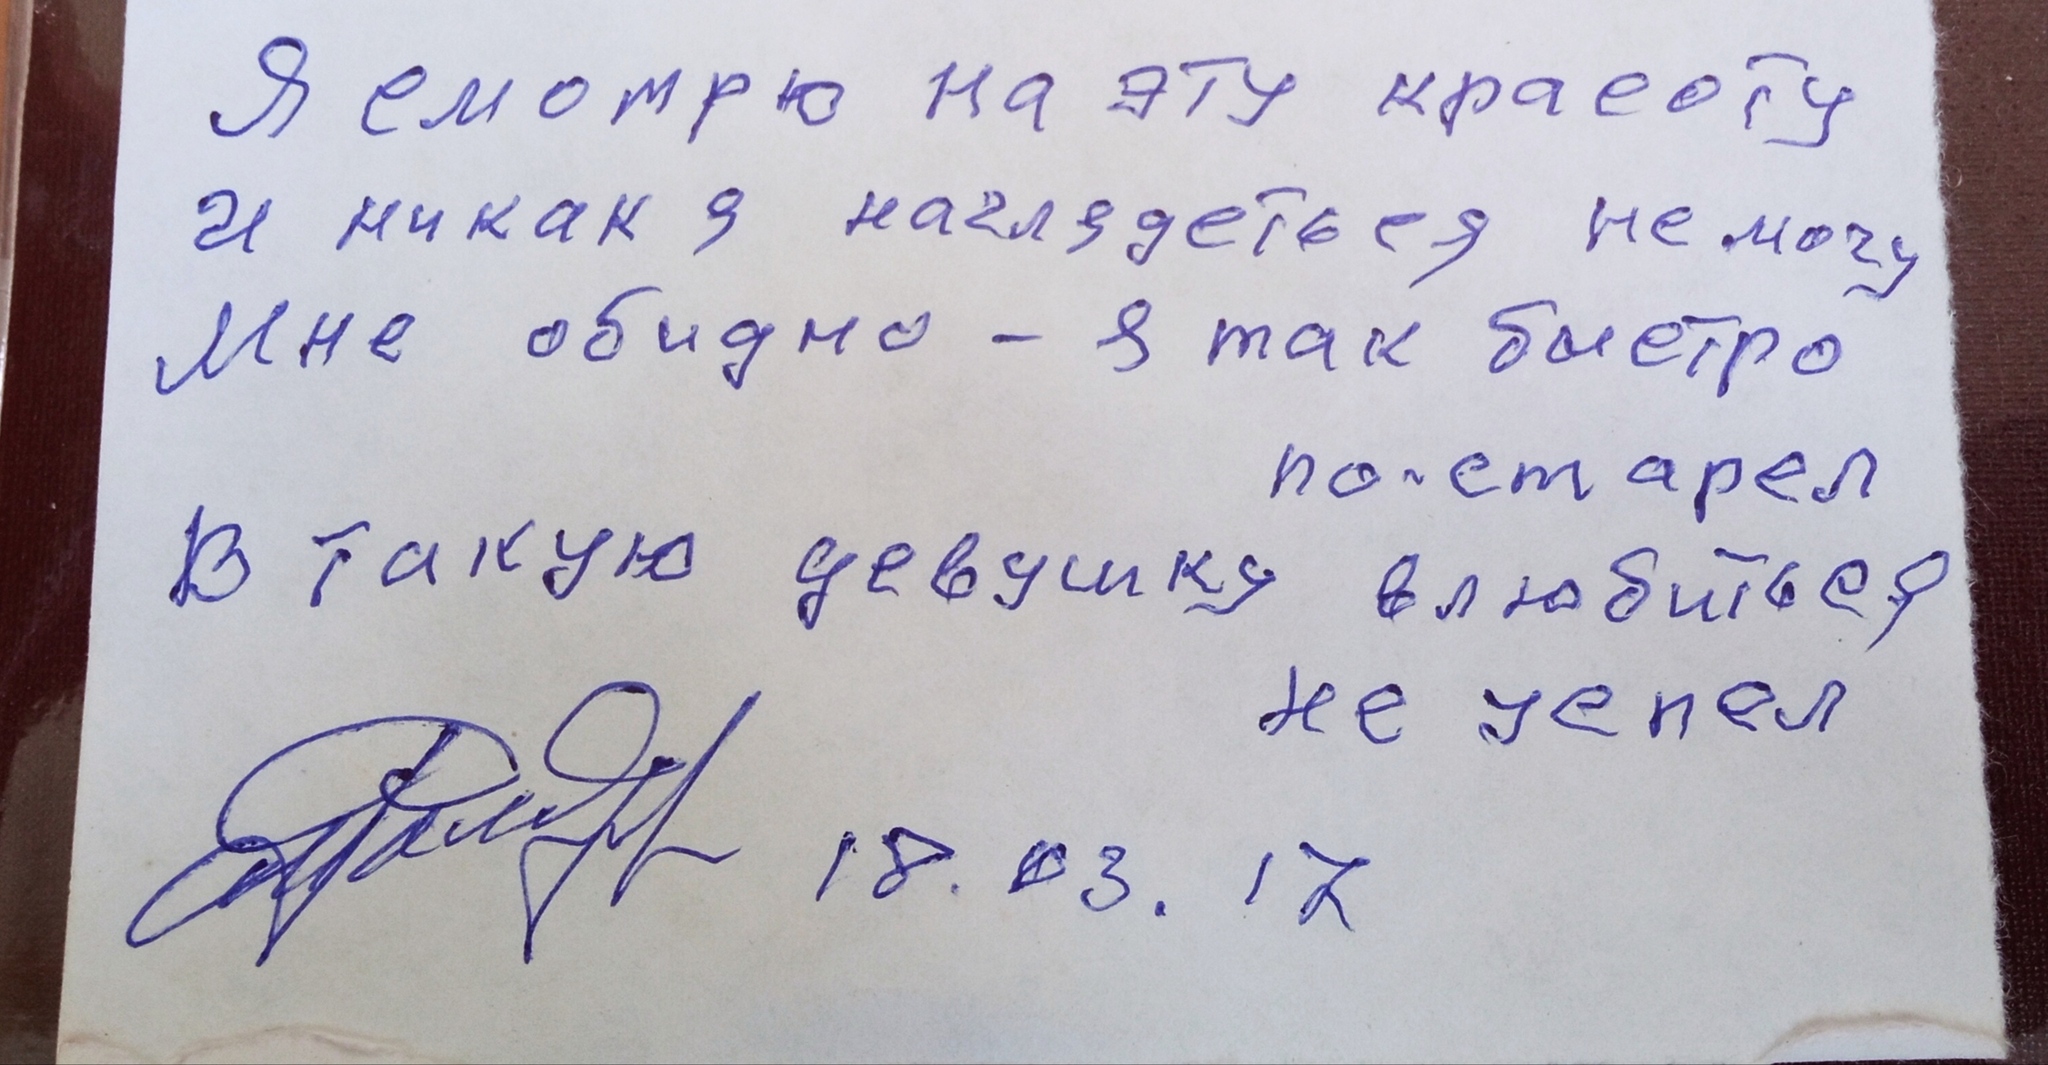 Я смотрю на эту красоту
и никак я наглядеться не могу
Мне обидно - я так быстро
по-старел
В такую девушку влюбиться
не успел
18.03.17